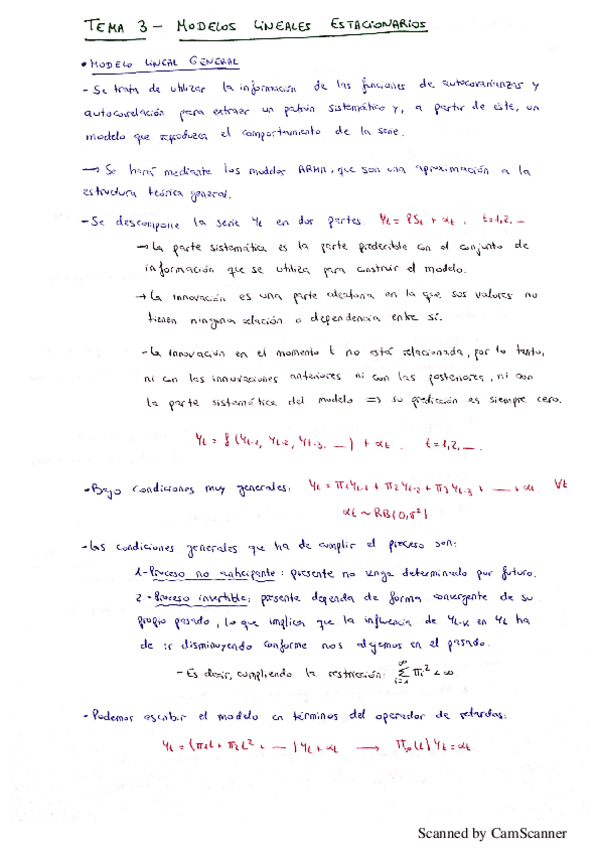 TEMA 3 - MODELOS LINEALES ESTACIONARIOS
• MODELO LINEAL GENERAL
- Se trata de utilizar la información de las funciones de autocovarianzas y
autocorrelación para extraer un patrón sistemático y, a partir de éste, un
modelo que reproduzca el comportamiento de la serie.
→ Se hará mediante los modelos ARMA, que son una aproximación a la
estructura teórica general.
- Se descompone la serie Yt en dos partes. Yt = PSt + at . t=1,2,...
→ La parte sistemática es la parte predecible con el conjunto de
información que se utiliza para construir el modelo.
→ La innovación es una parte aleatoria en la que sus valores no
tienen ninguna relación o dependencia entre sí.
- La innovación en el momento t no está relacionada, por lo tanto,
ni con las innovaciones anteriores ni con las posteriores, ni con
la parte sistemática del modelo => su predicción es siempre cero.
Yt = f (Yt-1, Yt-2, Yt-3, ...) + at . t=1,2,...
• Bajo condiciones muy generales: Yt = π1Yt-1 + π2Yt-2 + π3Yt-3 + ... + at ∀t
at ~ RB(0,σ²)
- Las condiciones generales que ha de cumplir el proceso son:
1- Proceso no anticipante: presente no venga determinado por futuro.
2- Proceso invertible: presente dependa de forma convergente de su
propio pasado, lo que implica que la influencia de Yt-k en Yt ha
de ir disminuyendo conforme nos alejamos en el pasado.
- Es decir, cumpliendo la restricción: ∑ᵢ₌₁^∞ πi² < ∞
- Podemos escribir el modelo en términos del operador de retardos:
Yt = (π1L + π2L² + ...) Yt + at → π∞(L) Yt = at
Scanned by CamScanner